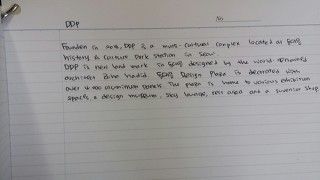 DDP
Founded in 2014, DDP is a multi-cultural complex located at
History & Culture Park station in Seoul.
DDP is new land mark in designed by the world-renowned
architect Zaha Hadid. Design Plaza is decorated with
over aluminum panels. The plaza is home to various exhibition
spaces, a design museum, sky lounge, rest area and a souvenir shop.